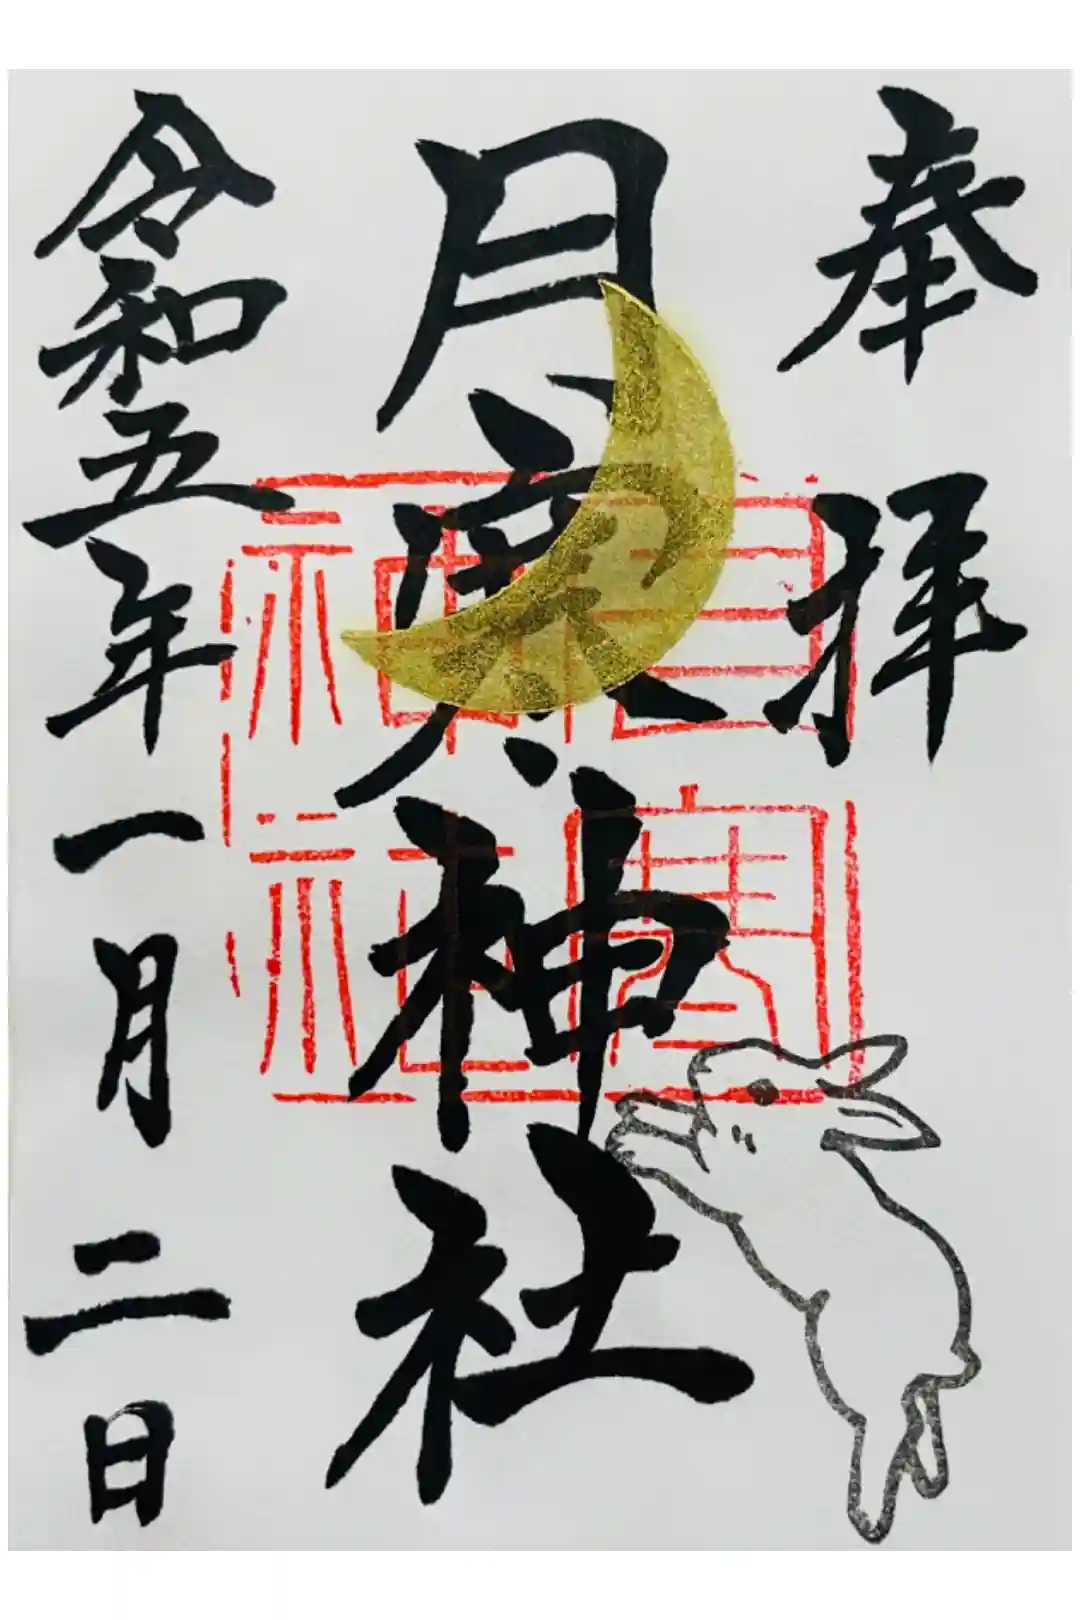 奉拝
月廣神社
令和五年一月二日